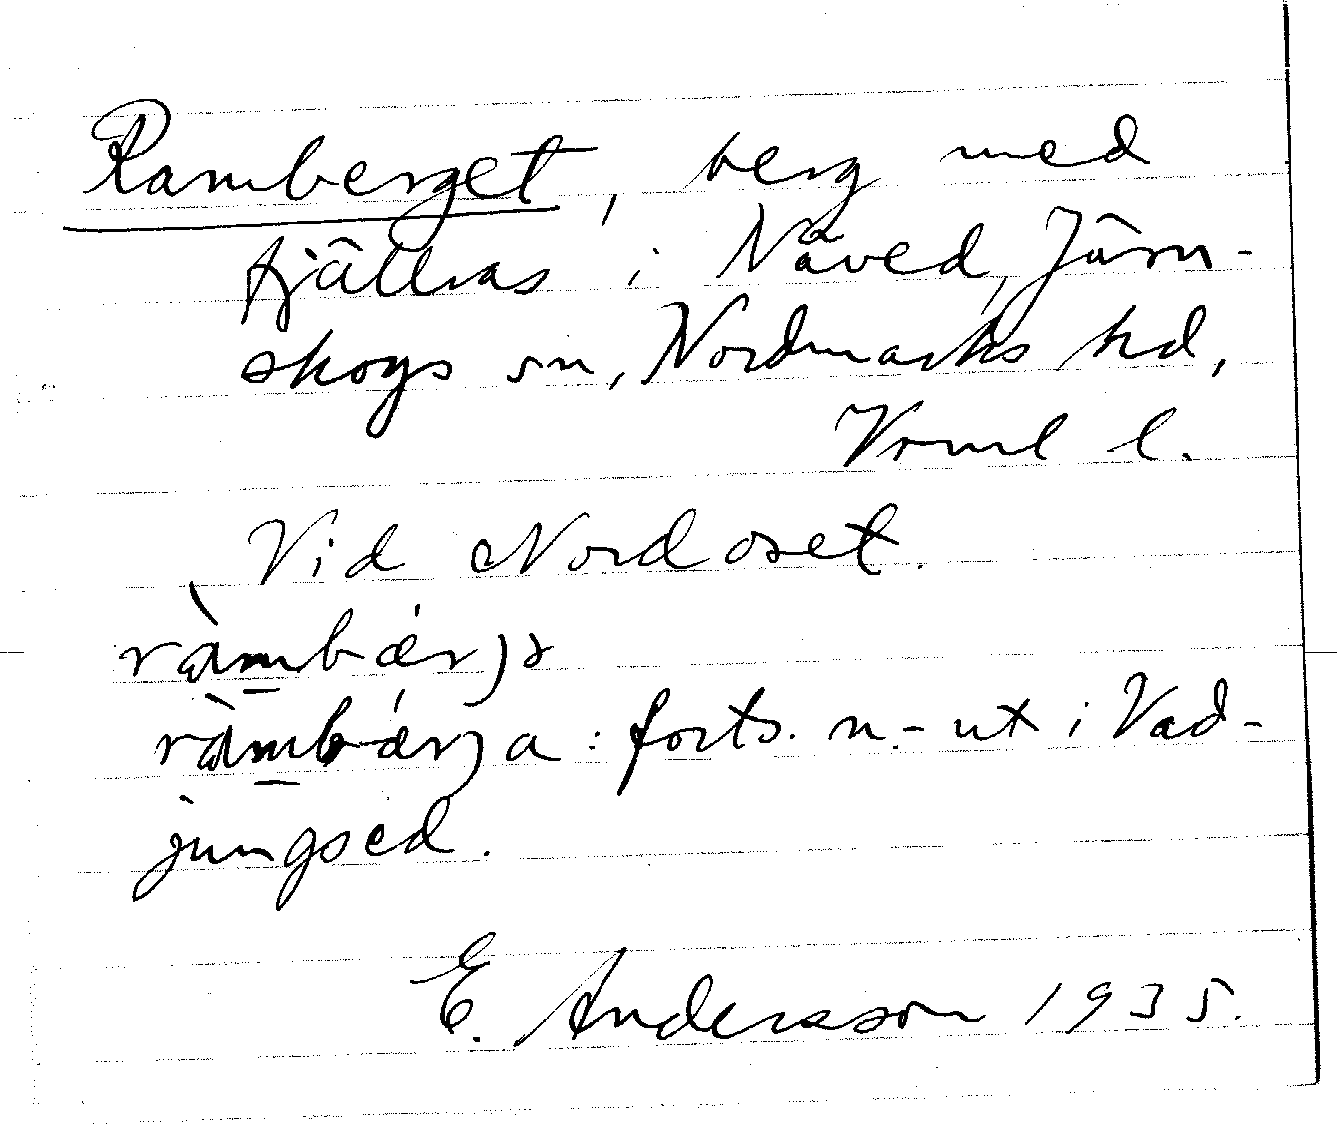 Ramberget, berg med
fjällras i Nåved, Järn-
skogs sn, Nordmarks hd,
Vrml l.
Vid Nordoset.
ràmbǽrjə
ràmbǽrja: forts. n.-ut i Vad-
jungsed.
E. Andersson 1935.